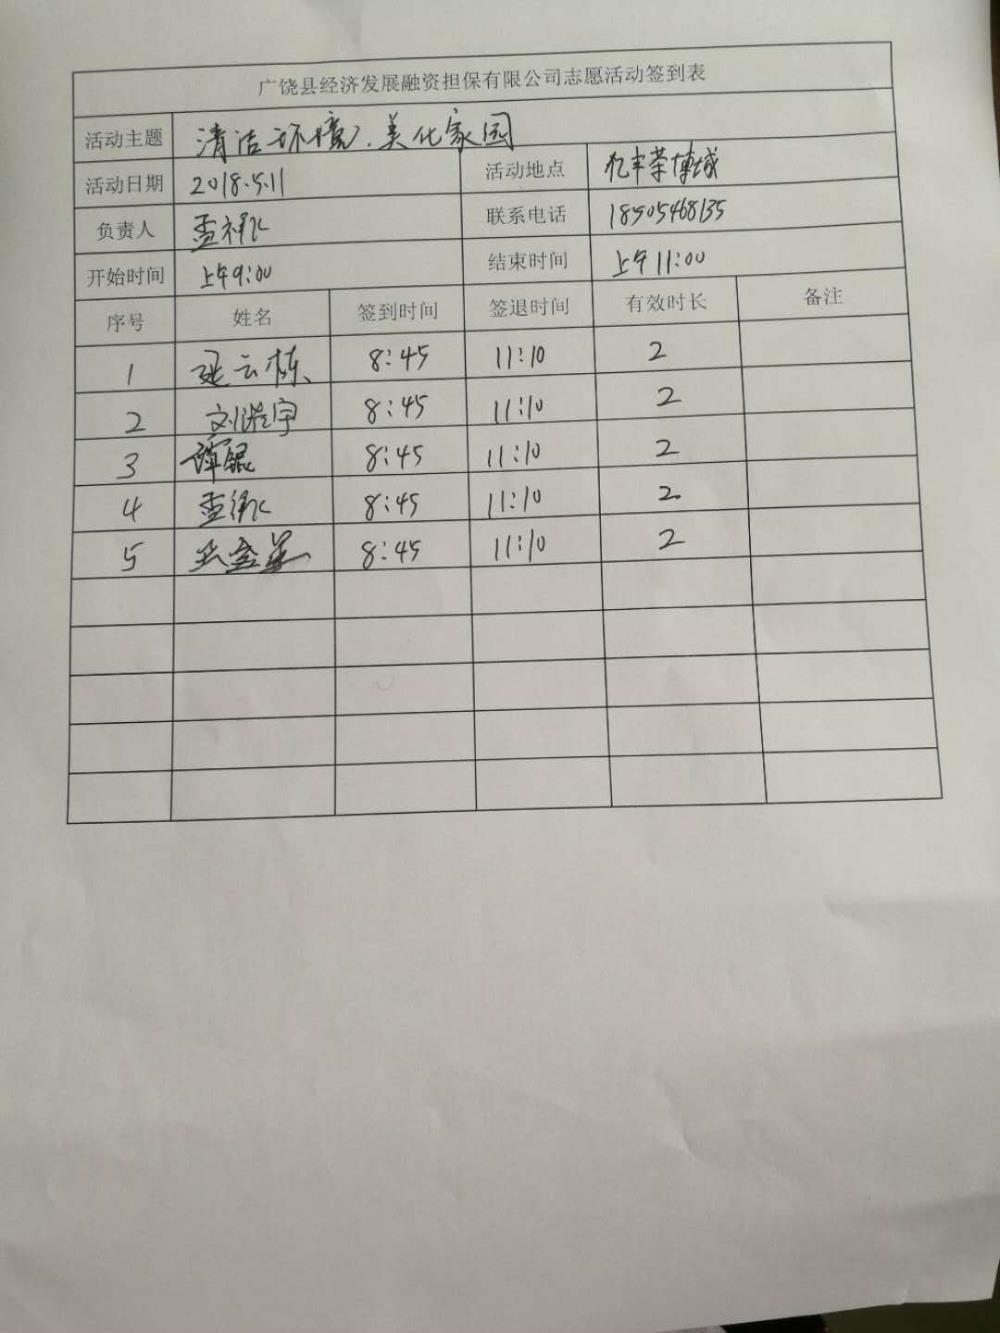 广饶县经济发展融资担保有限公司志愿活动签到表
活动主题 清洁环境.美化家园
活动日期 2018.5.11 活动地点 亿丰荣博城
负责人 孟 联系电话 18505468135
开始时间 上午9:00 结束时间 上午11:00
序号 姓名 签到时间 签退时间 有效时长 备注
1 张云栋 8:45 11:10 2
2 刘浩宇 8:45 11:10 2
3 谭锟 8:45 11:10 2
4 孟 8:45 11:10 2
5 8:45 11:10 2